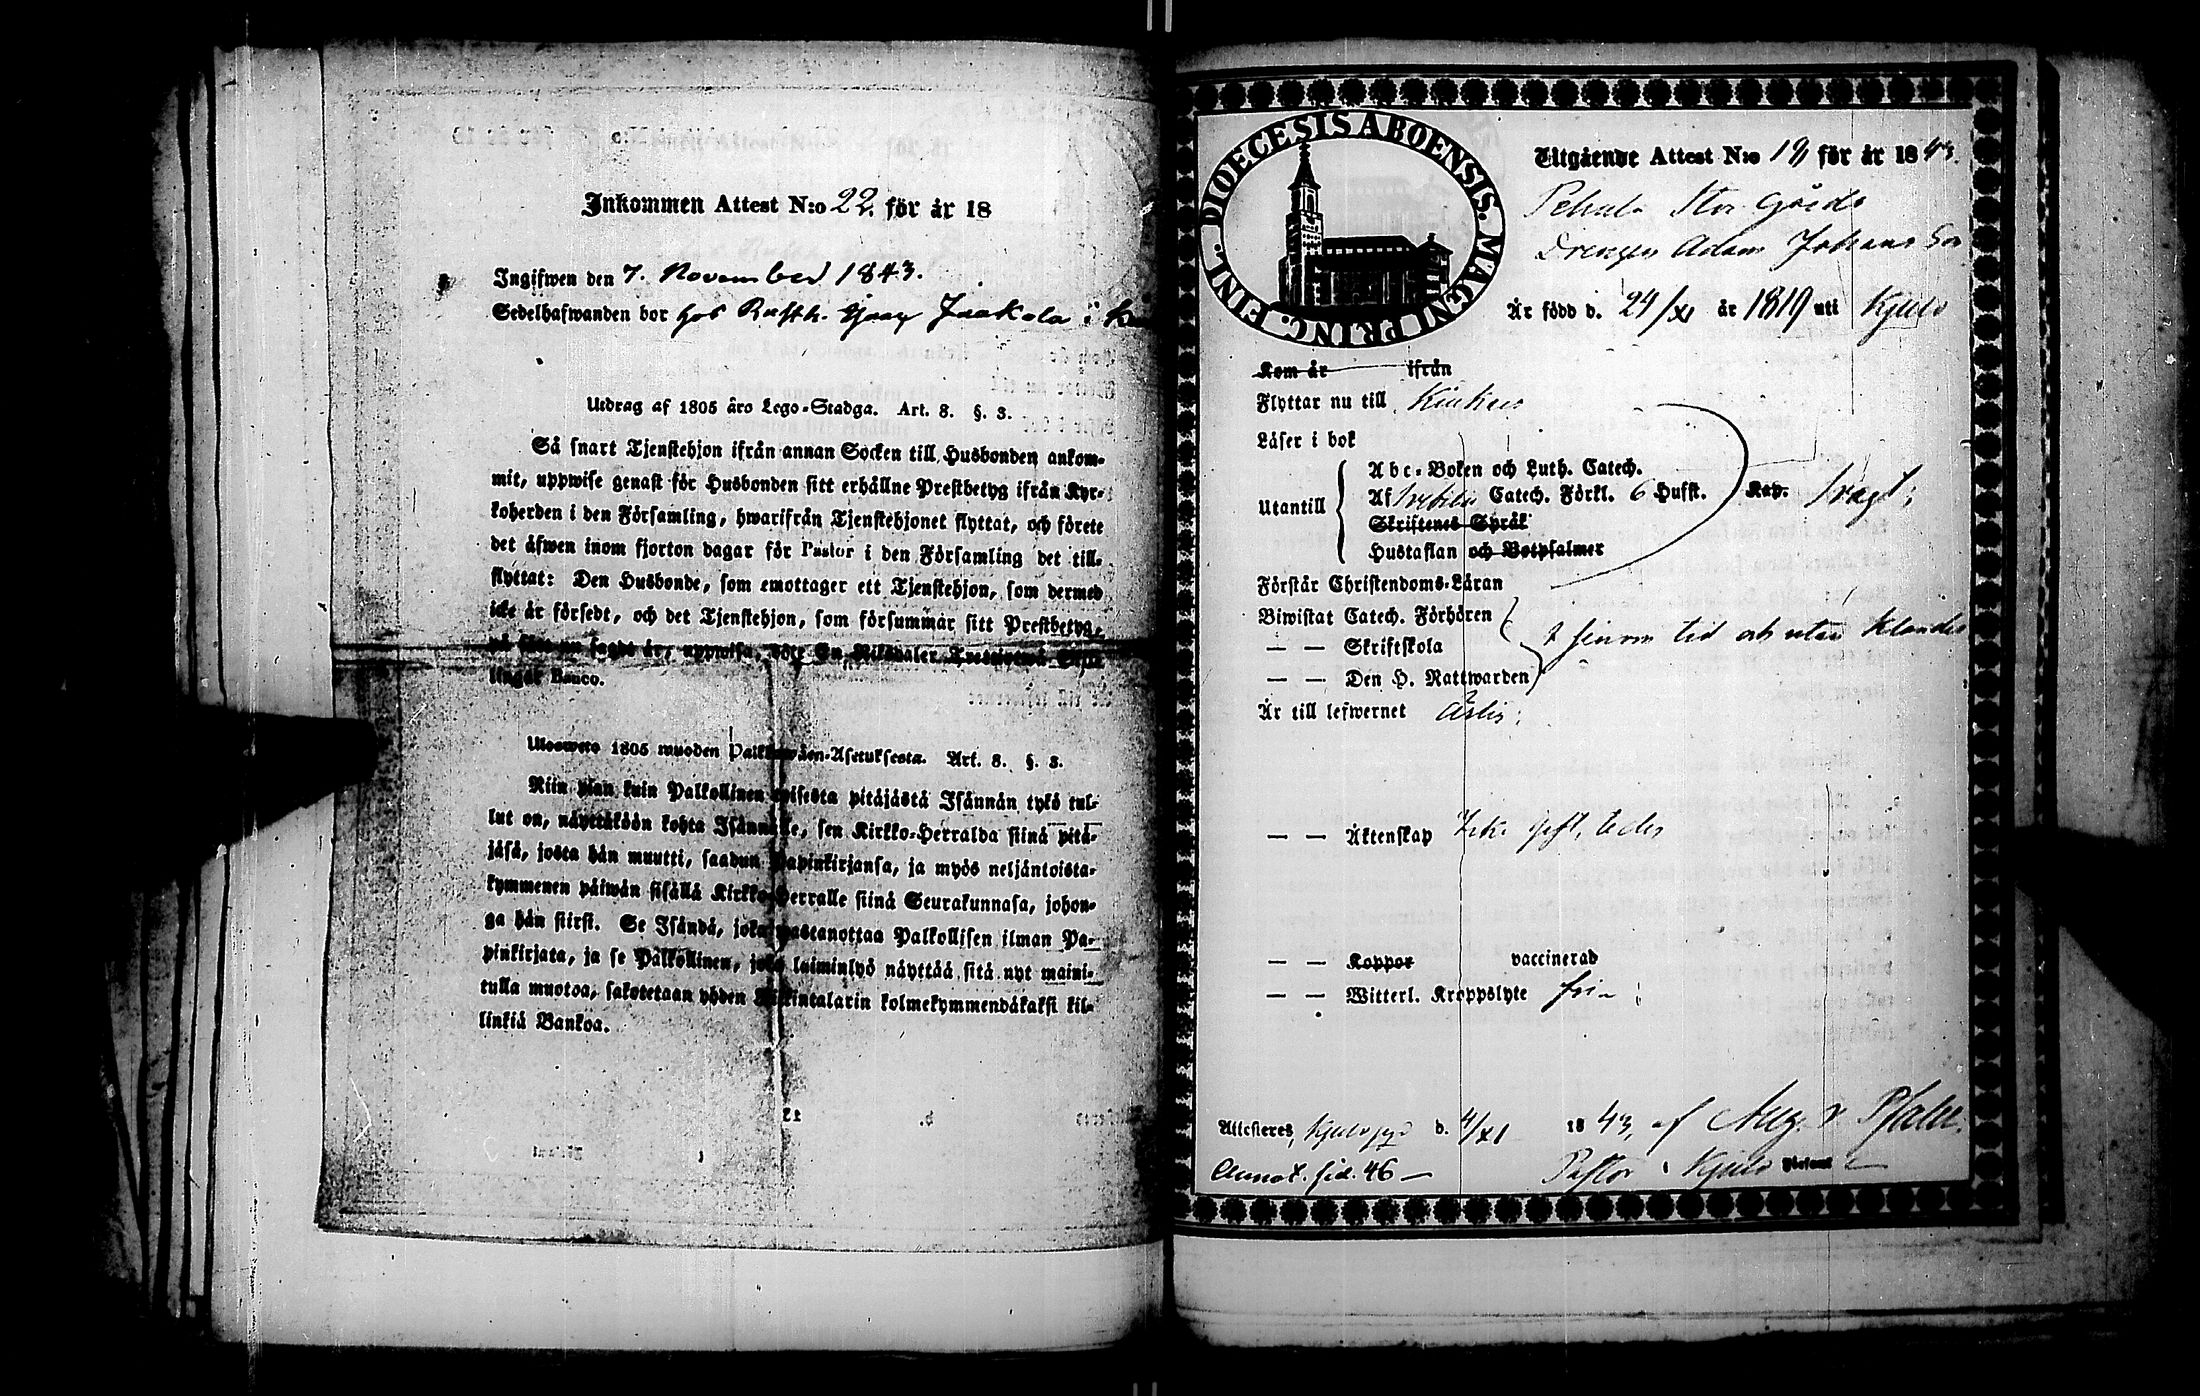 Inkommen Attest N:o 22. för år 18
Ingifwen den 7. November 1843.
Sedelhafwanden bor hos Rusth. Jaakola i
Utdrag af 1805 års Lego-Stadga. Art. 8. §. 3.
Så snart Tjenstehjon ifrån annan Socken till Husbonden ankom-
mit, uppwise genast för Husbonden sitt erhållne Prestbetyg ifrån Kyr-
koherden i den Församling, hwarifrån Tjenstehjonet flyttat, och förete
det äfwen inom fjorton dagar för Pastor i den Församling det till-
flyttat: Den Husbonde, som emottager ett Tjenstehjon, som dermed
icke är försedt, och det Tjenstehjon, som försummar sitt Prestbetyg,
på sätt nu sagdt är, uppwisa, böte En Riksdaler Trettiotwå Skil-
lingar Banco.
Ulosweto 1805 wuoden Palkkawäen-Asetuksesta. Art. 8. §. 3.
Niin pian kuin Palkollinen toisesta pitäjästä Isännän tykö tul-
lut on, näyttäköön kohta Isännälle, sen Kirkko-Herralda siinä pitä-
jäsä, josta hän muutti, saadun Papinkirjansa, ja myös neljäntoista-
kymmenen päiwän sisällä Kirkko-Herralle siinä Seurakunnasa, johon-
ga hän siirsi. Se Isändä, joka wastanottaa Palkollisen ilman Pa-
pinkirjata, ja se Palkollinen, joka laiminlyö näyttää sitä nyt maini-
tulla muotoa, sakotetaan yhden Riikintalarin kolmekymmendäkaksi kil-
linkiä Bankoa.
EINL. DIOECESIS ABOENSIS. MAGNI PRINC.
Utgående Attest N:o för år 1843.
Stor Gårds
Drengen Adam Johansson
Är född d. 24/XI år 1819 uti Kjulo
Kom år ifrån
Flyttar nu till Kiukais
Läser i bok
Utantill
Abc-Boken och Luth. Catech.
Af Svebilii Catech. Förkl. 6 Hufst. Kap. svagt;
Skriftenes Språk
Hustaflan och Botpsalmer
Förstår Christendoms-Läran
Biwistat Catech. Förhören
— — Skriftskola
— — Den H. Nattwarden
i sinom tid och utan klander
Är till lefwernet ärlig;
— — Äktenskap Icke gift, ledig
— — Koppor vaccinerad
— — Witterl. Kroppslyte fri ;
Attesteras, Kjulo d. 4/XI 1843, af Aug. v Pfaler.
Annot. sid. 46 — Pastor i Kjulo Församl